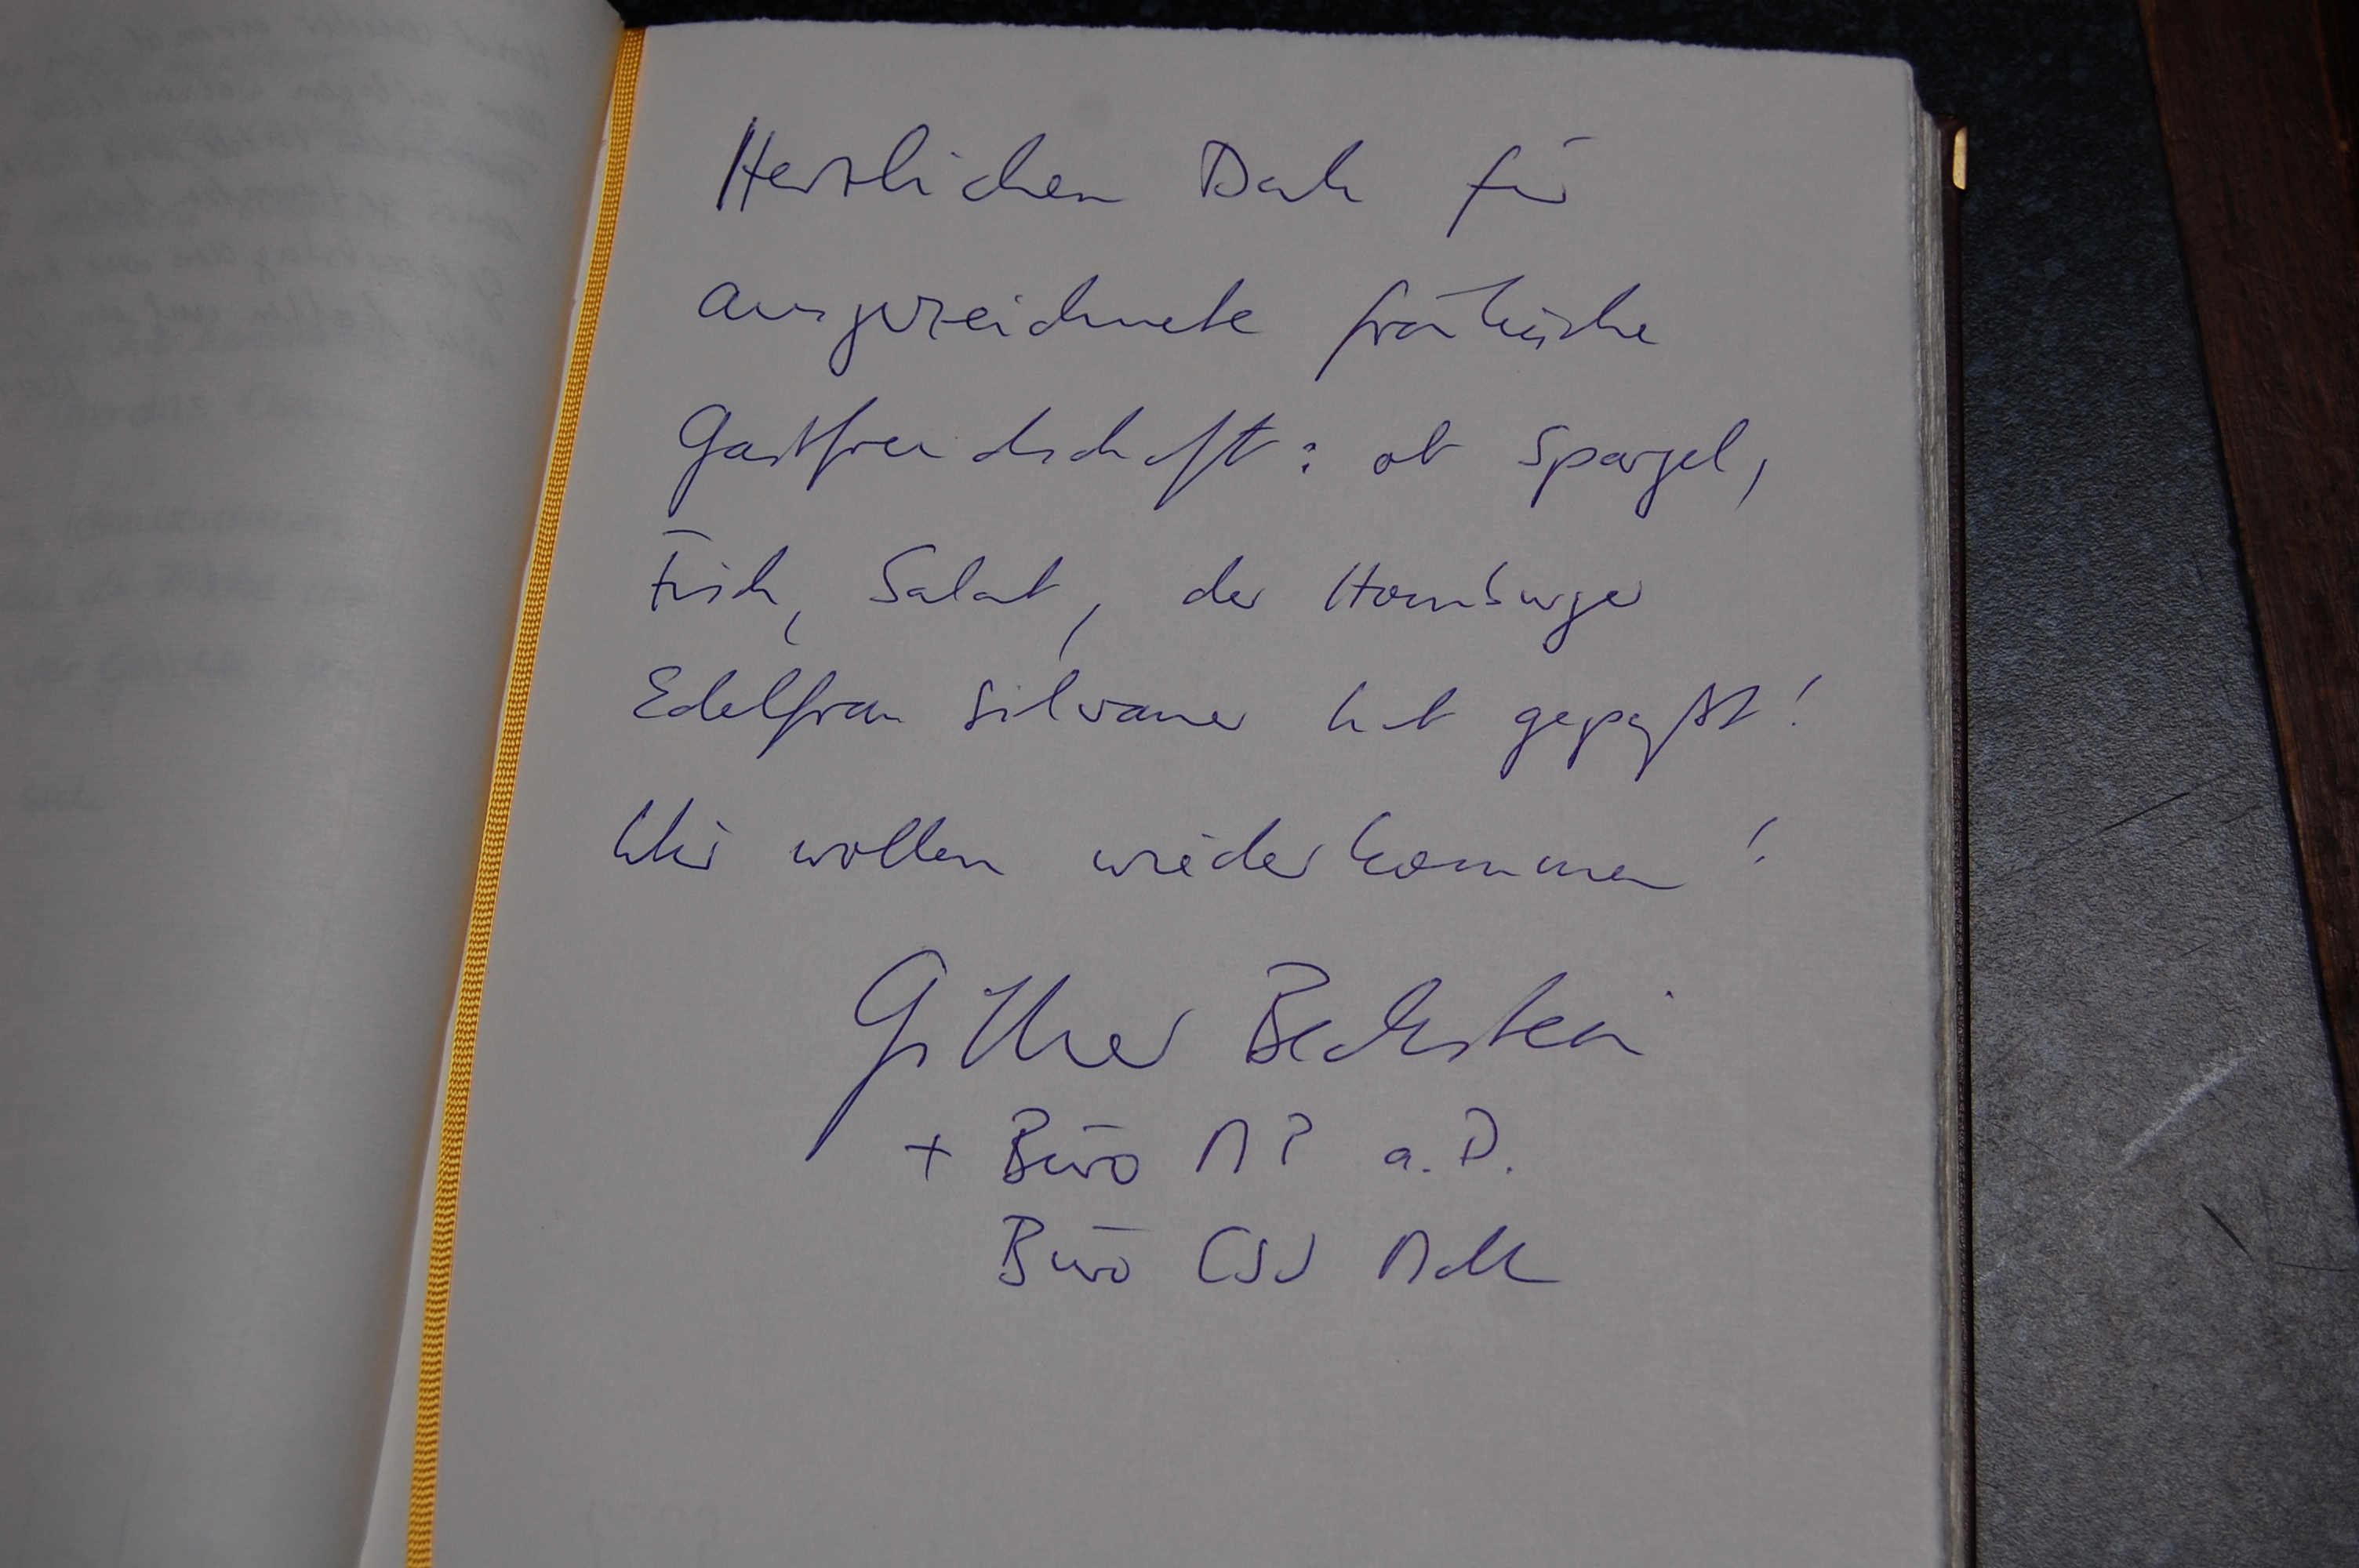 Herzlichen Dank für
ausgezeichnete fränkische
Gastfreundschaft: ob Spargel,
Fisch, Salat, der Homburger
Edelfrau Silvaner hat gepaßt!
Wir wollen wiederkommen!
Günther Beckstein
+ Büro MP a.D.
Büro CSU